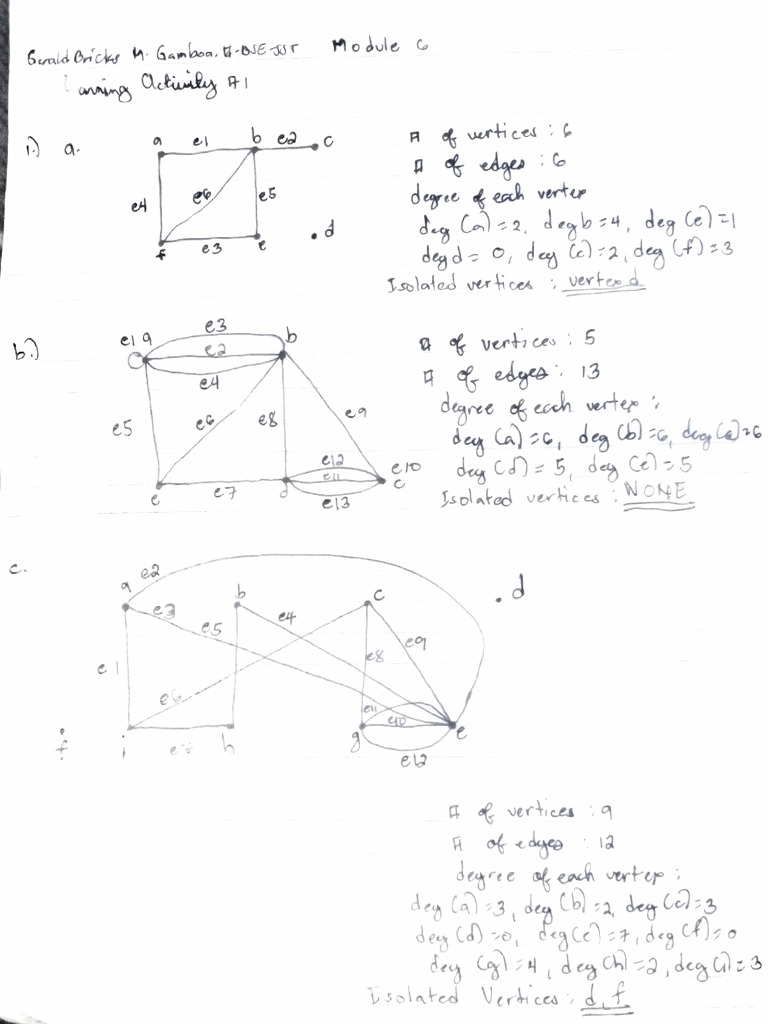 Gerald Bricks M. Gamboa, Module 6
Activity #1
1.) a.
a e1 b e2 c
e4 e6 e5
d
f e3 e
# of vertices : 6
# of edges : 6
degree of each vertex
deg (a) = 2, deg b = 4, deg (c) = 1
deg d = 0, deg (e) = 2, deg (f) = 3
Isolated vertices : vertex d
b.)
e3
e1 a e2 b
e4
e5 e6 e8 e9
e12
e11 e10
e e7 d c
e13
# of vertices : 5
# of edges : 13
degree of each vertex :
deg (a) = 6, deg (b) = 6, deg (c) = 6
deg (d) = 5, deg (e) = 5
Isolated vertices : NONE
c.
e2
a b c . d
e3 e5 e4
e1 e8 e9
e6
e11 e10
f i h g e
e12
# of vertices : 9
# of edges : 12
degree of each vertex :
deg (a) = 3, deg (b) = 2, deg (c) = 3
deg (d) = 0, deg (e) = 7, deg (f) = 0
deg (g) = 4, deg (h) = 2, deg (i) = 3
Isolated Vertices : d, f